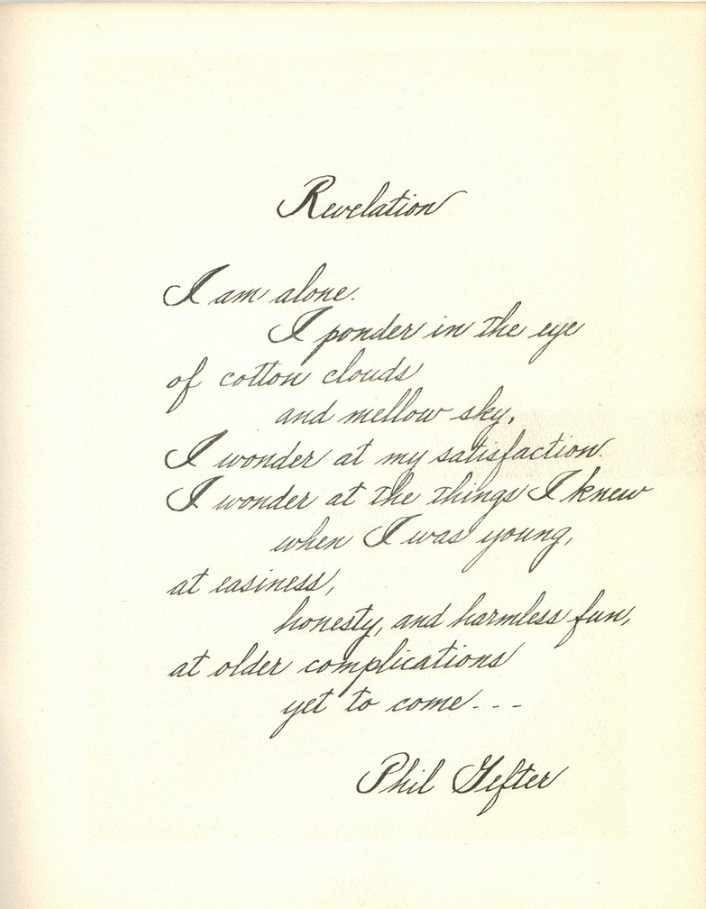 Revelation
I am alone.
I ponder in the eye
of cotton clouds
and mellow sky.
I wonder at my satisfaction.
I wonder at the things I knew
when I was young,
at easiness,
honesty, and harmless fun,
at older complications
yet to come---
Phil Gefter